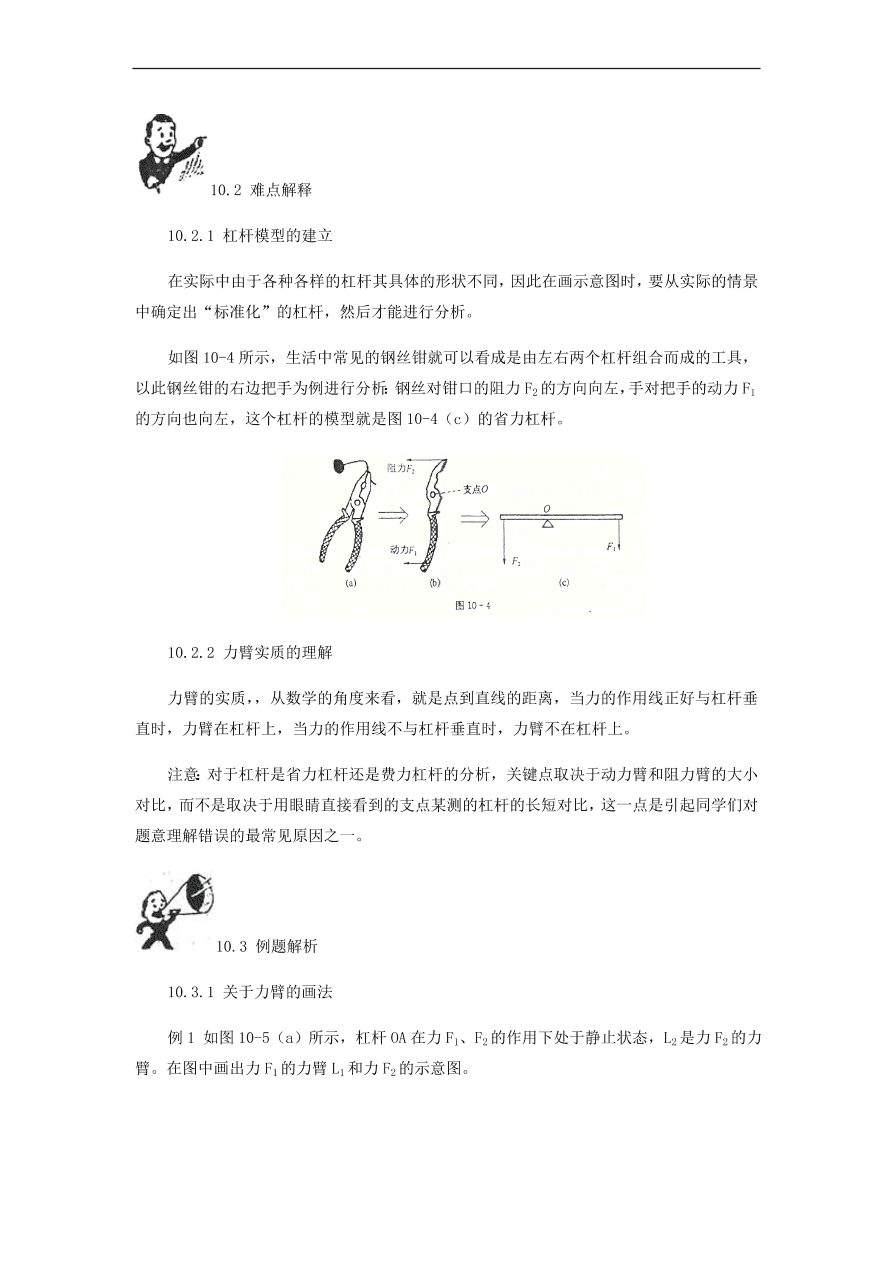 10.2 难点解释
10.2.1 杠杆模型的建立
在实际中由于各种各样的杠杆其具体的形状不同，因此在画示意图时，要从实际的情景
中确定出“标准化”的杠杆，然后才能进行分析。
如图 10-4 所示，生活中常见的钢丝钳就可以看成是由左右两个杠杆组合而成的工具，
以此钢丝钳的右边把手为例进行分析：钢丝对钳口的阻力 F₂ 的方向向左，手对把手的动力 F₁
的方向也向左，这个杠杆的模型就是图 10-4（c）的省力杠杆。
阻力F₂
支点O
动力F₁
O
F₂
F₁
(a) (b) (c)
图 10-4
10.2.2 力臂实质的理解
力臂的实质，，从数学的角度来看，就是点到直线的距离，当力的作用线正好与杠杆垂
直时，力臂在杠杆上，当力的作用线不与杠杆垂直时，力臂不在杠杆上。
注意：对于杠杆是省力杠杆还是费力杠杆的分析，关键点取决于动力臂和阻力臂的大小
对比，而不是取决于用眼睛直接看到的支点某测的杠杆的长短对比，这一点是引起同学们对
题意理解错误的最常见原因之一。
10.3 例题解析
10.3.1 关于力臂的画法
例 1 如图 10-5（a）所示，杠杆 OA 在力 F₁、F₂ 的作用下处于静止状态，L₂ 是力 F₂ 的力
臂。在图中画出力 F₁ 的力臂 L₁ 和力 F₂ 的示意图。